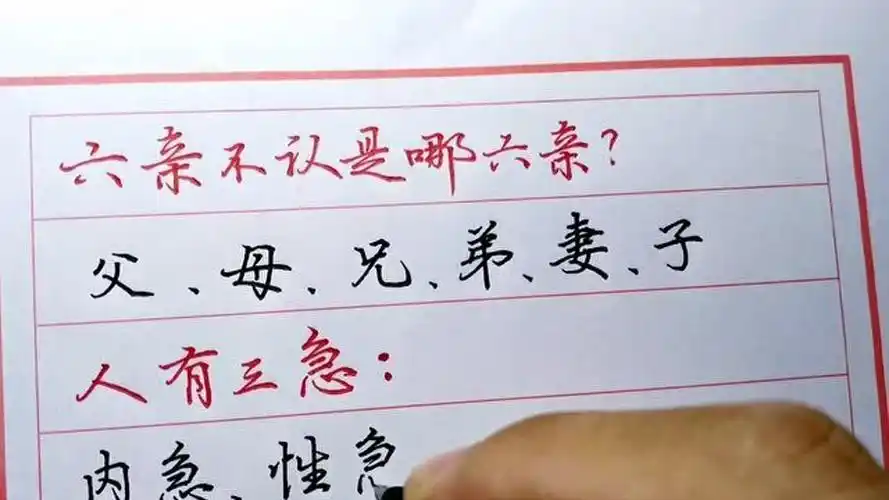 六亲不认是哪六亲?
父、母、兄、弟、妻、子
人有三急:
内急、性急